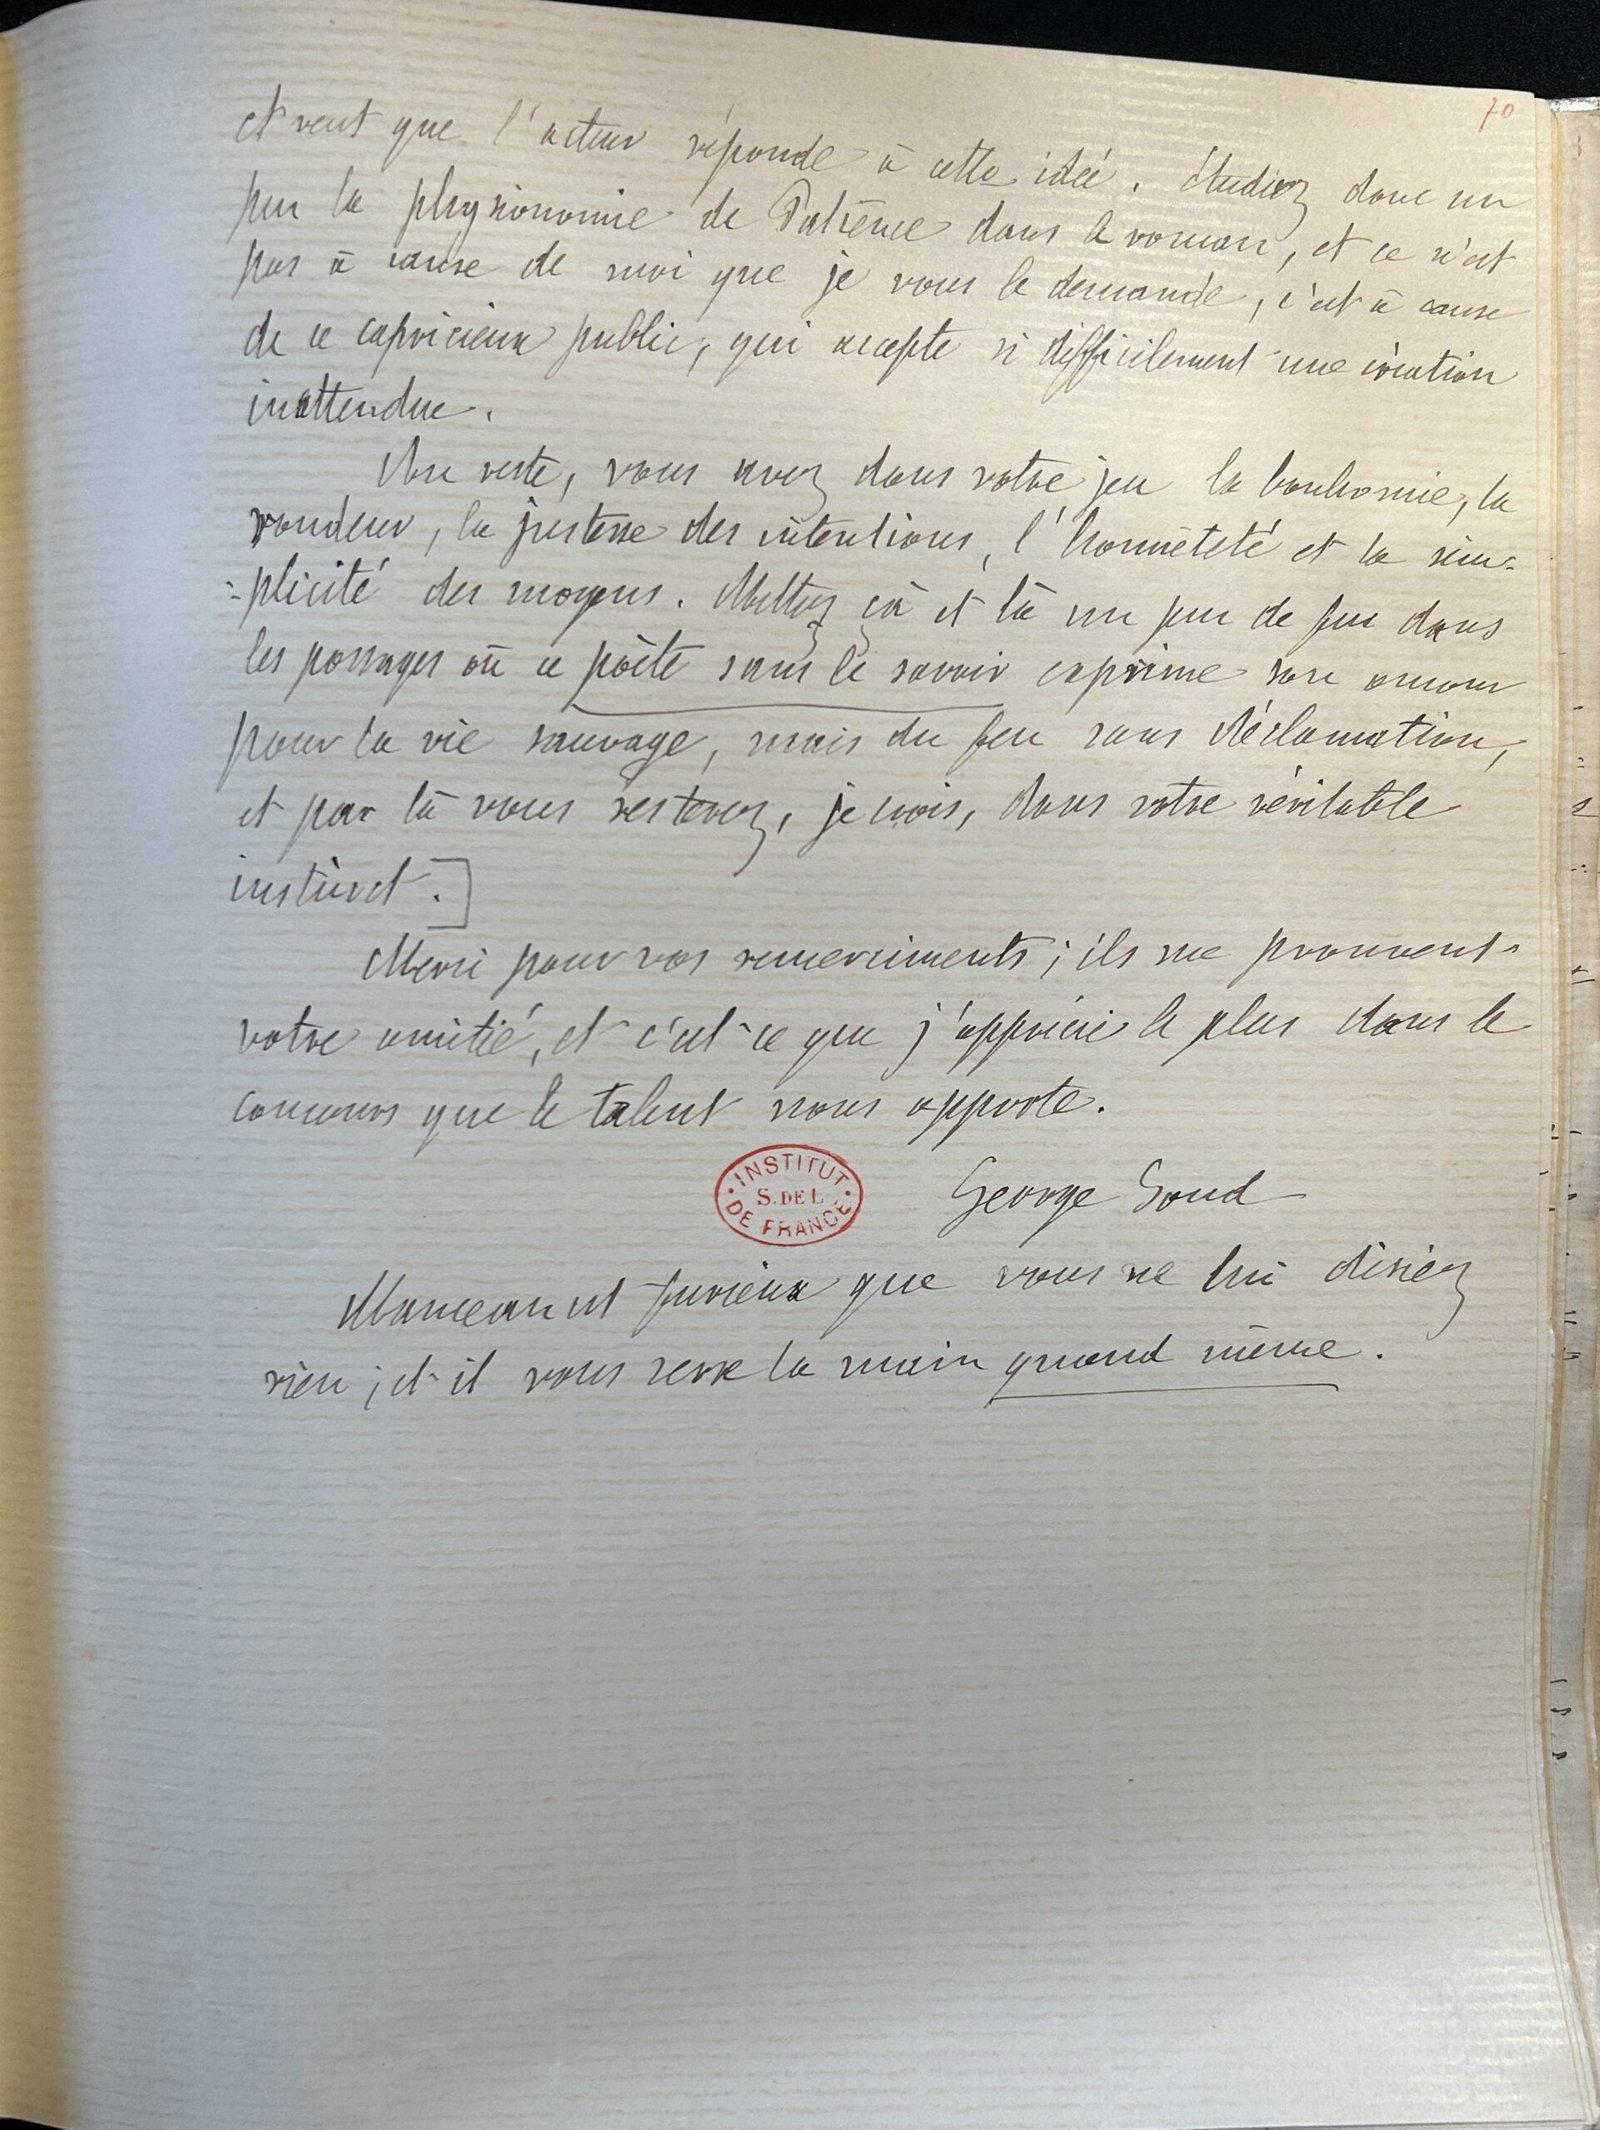 70
et veut que l'acteur réponde à cette idée. Étudiez donc un
peu la physionomie de Patience dans le roman, et ce n'est
pas à cause de moi que je vous le demande, c'est à cause
de ce capricieux public, qui accepte si difficilement une création
inattendue.
Au reste, vous avez dans votre jeu la bonhomie, la
rondeur, la justesse des intentions, l'honnêteté et la sim-
-plicité des moyens. Mettez çà et là un peu de feu dans
les passages où ce poète sans le savoir exprime son amour
pour la vie sauvage, mais du feu sans déclamation,
et par là vous resterez, je crois, dans votre véritable
instinct.]
Merci pour vos remerciments; ils me prouvent
votre amitié, et c'est ce que j'apprécie le plus dans le
concours que le talent nous apporte.
INSTITUT
S. DE L.
DE FRANCE
George Sand
Manceau est furieux que vous ne lui disiez
rien; et il vous serre la main quand même.